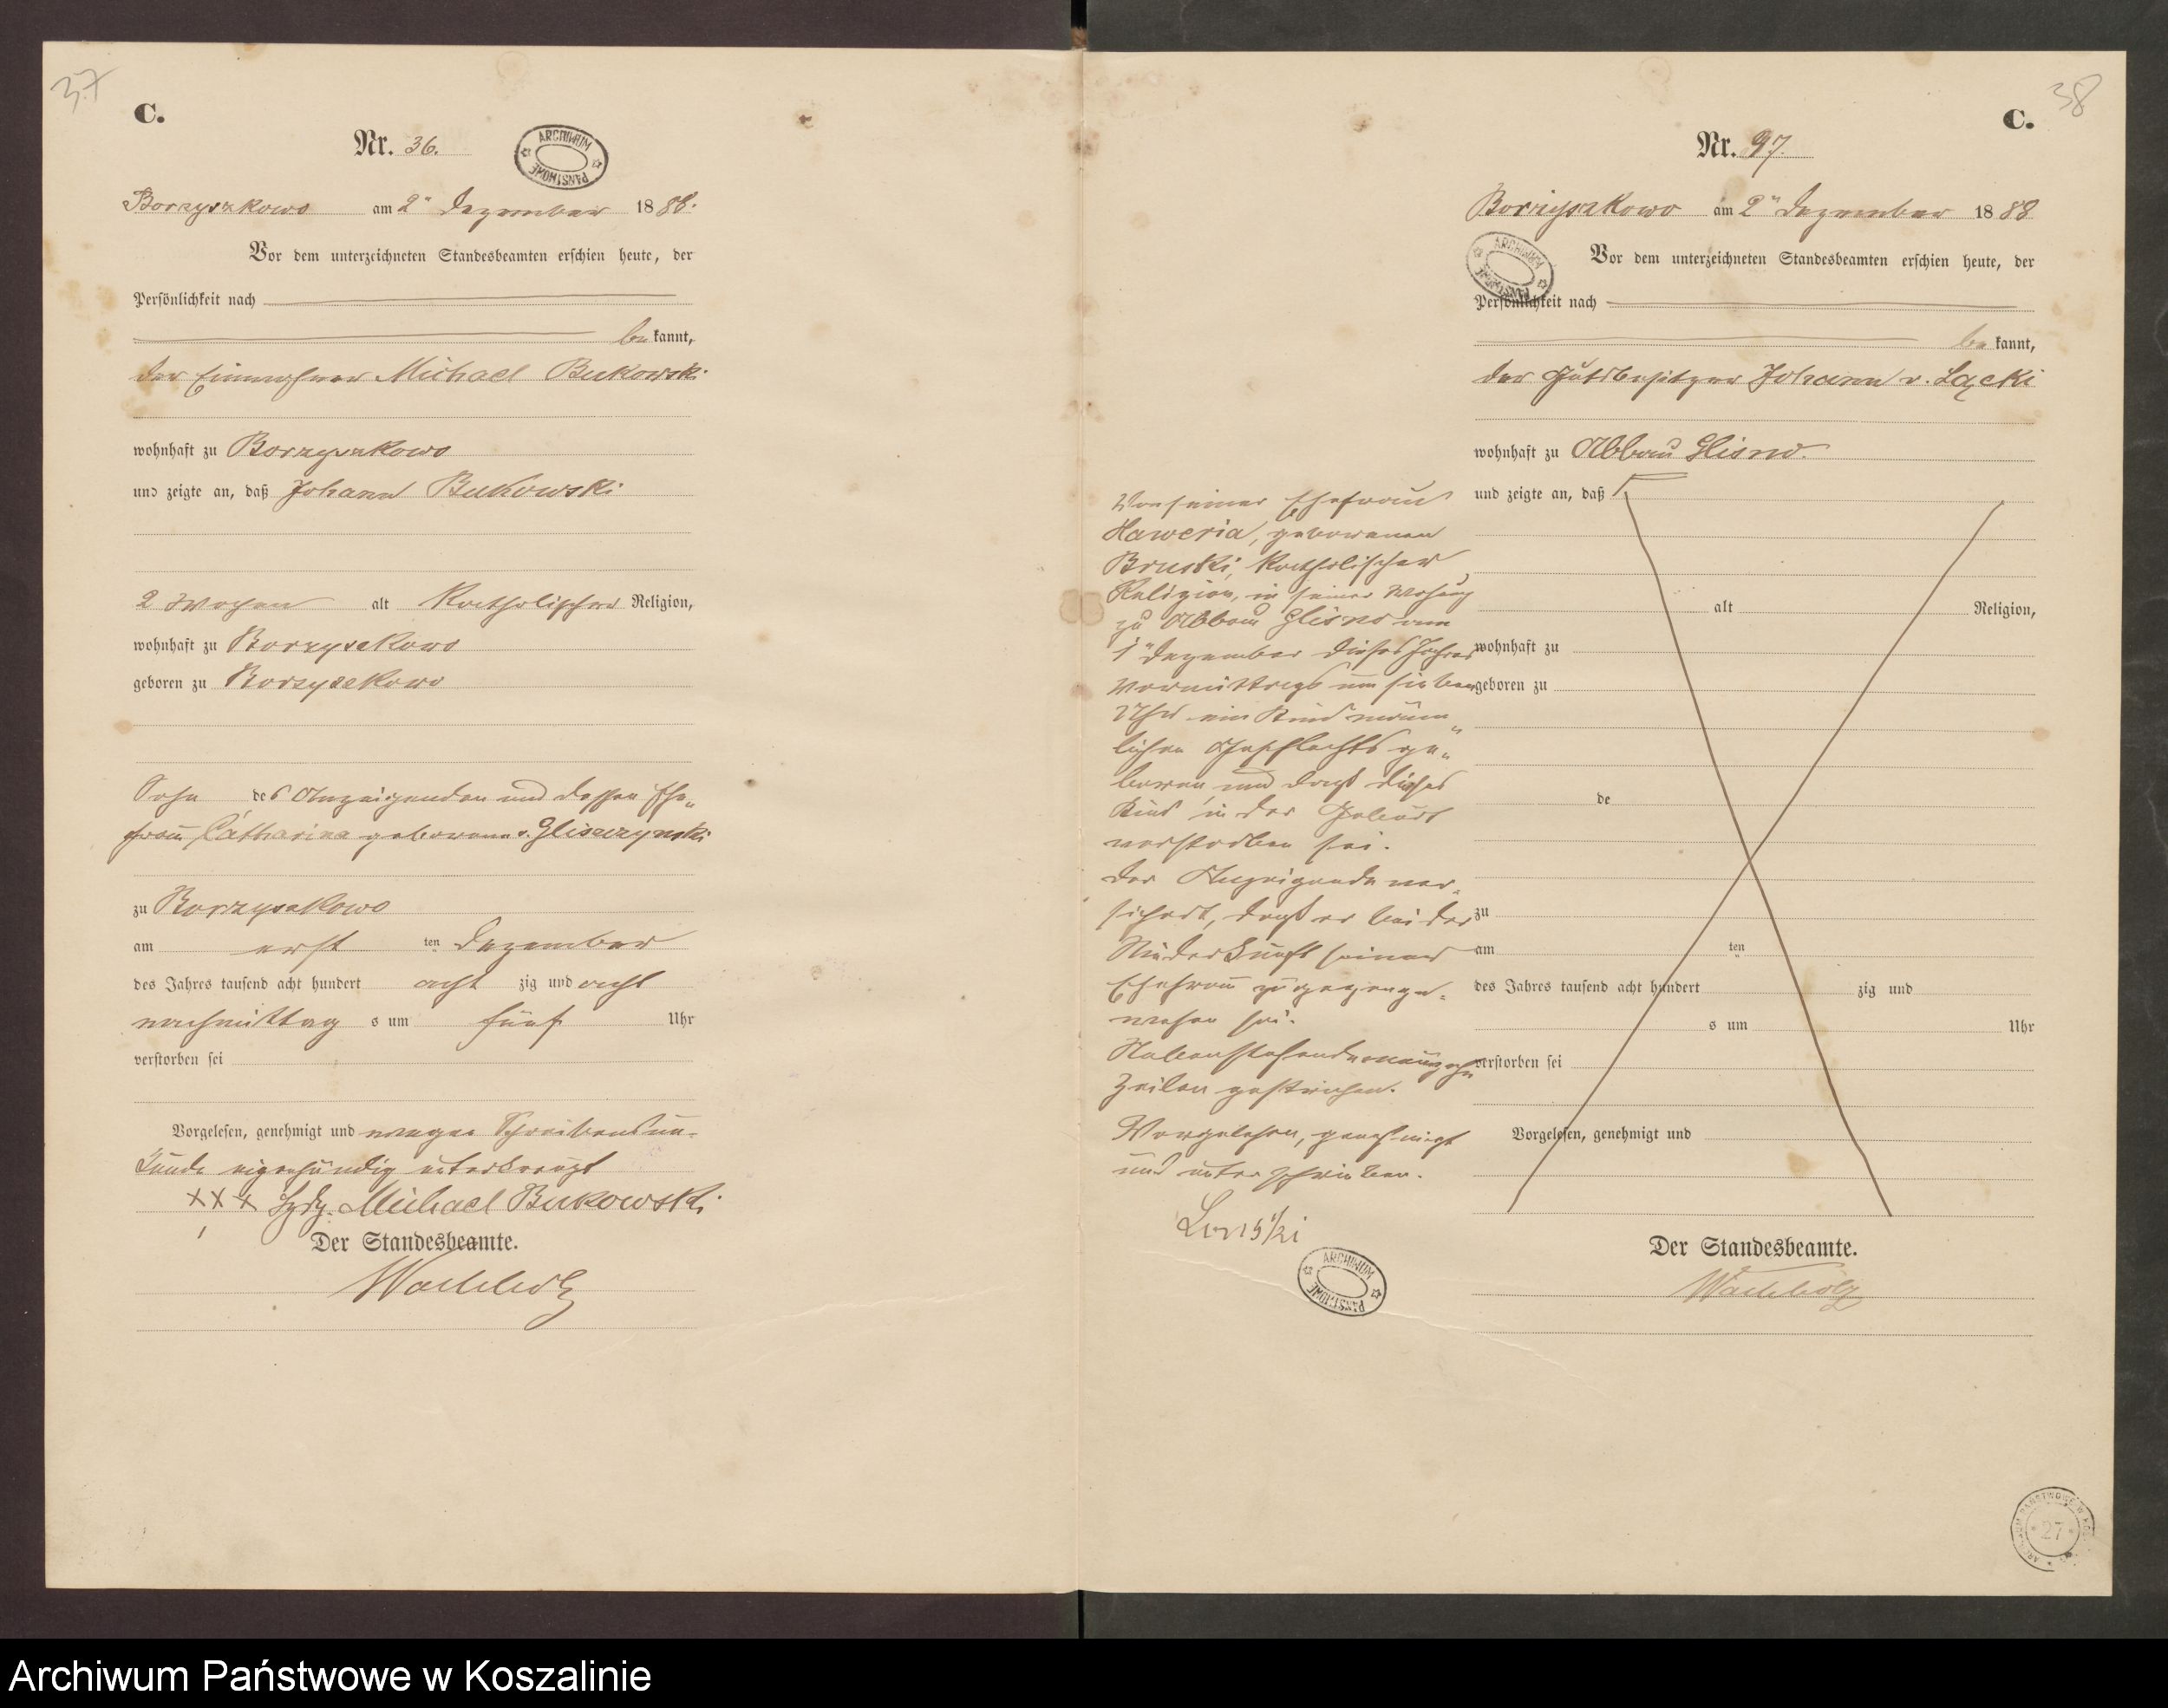 37
C.
Nr. 36.
ARCHIWUM PAŃSTWOWE
Borzyszkowo am 2ten Dezember 1888.
Vor dem unterzeichneten Standesbeamten erschien heute, der
Persönlichkeit nach
be kannt,
der Einwohner Michael Bukowski
wohnhaft zu Borzyszkowo
und zeigte an, daß Johann Bukowski
2 Wochen alt katholischer Religion,
wohnhaft zu Borzyszkowo
geboren zu Borzyszkowo
Sohn des Anzeigenden und dessen Ehe„
frau, Catharina geborene v. Gliszczynski
zu Borzyszkowo
am erst ten Dezember
des Jahres tausend acht hundert acht zig und acht
nachmittag s um fünf Uhr
verstorben sei
Vorgelesen, genehmigt und wegen Schreibensun-
kunde eigenhändig unterkreuzt
XXX Hdz. Michael Bukowski
Der Standesbeamte.
Wachholz
38
C.
Nr. 97.
Borzyszkowo am 2ten Dezember 1888
ARCHIWUM PAŃSTWOWE
Vor dem unterzeichneten Standesbeamten erschien heute, der
Persönlichkeit nach
be kannt,
der Gutsbesitzer Johann v. Łącki
wohnhaft zu Abbau Glisno.
und zeigte an, daß
alt Religion,
wohnhaft zu
geboren zu
de
zu
am ten
des Jahres tausend acht hundert zig und
s um Uhr
verstorben sei
Vorgelesen, genehmigt und
Von seiner Ehefrau
geborenen
Bruski, katholischer
Religion, in seiner Wohnung
zu Abbau Glisno am
1ten Dezember dieses Jahres
Vormittags um sieben
Uhr ein Kind männ„
lichen Geschlechts ge„
boren, und daß dieses
Kind in der Geburt
verstorben sei.
Der Anzeigende ver„
sichert, daß er bei der
Niederkunft seiner
Ehefrau zugegen ge„
wesen sei.
Nebenstehende neunzehn
Zeilen gestrichen.
Vorgelesen, genehmigt
und unterschrieben.
ARCHIWUM PAŃSTWOWE
Der Standesbeamte.
Wachholz
27
Archiwum Państwowe w Koszalinie